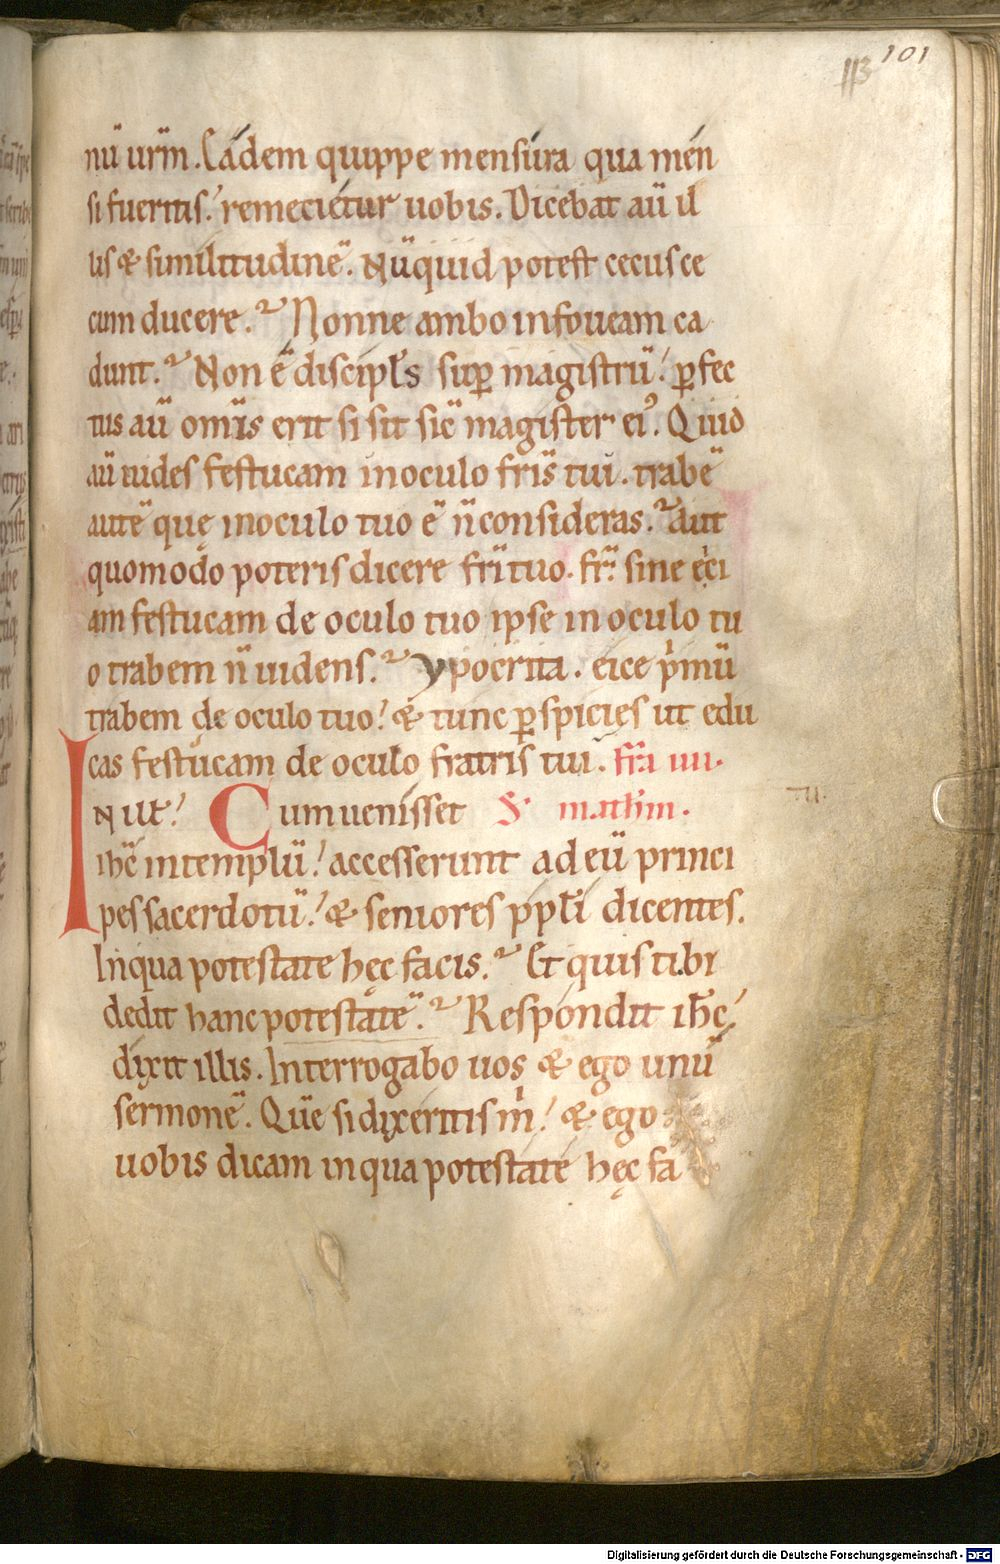 113 101
nū urm̄. Eadem quippe mensura qua men
si fueritis! remecietur uobis. Dicebat aū il
lis & similitudinē. Nūquid potest cecus ce
cum ducere. Nonne ambo infoueam ca
dunt. Non ē discipl̄s sup̲ magistrū! p̲fec
tus aū omīs erit si sit sic̄ magister ei᾽. Quid
aū uides festucam inoculo fris̄ tui. trabē
autē quę inoculo tuo ē n̄ consideras. Aut
quomodo poteris dicere fri̅ tuo. fr̄. sine eici
am festucam de oculo tuo ipse in oculo tu
o trabem n̄ uidens. ypocrita. eice pͥmū
trabem de oculo tuo! & tunc p̲spicies ut edu
cas festucam de oculo fratris tui. fr̄a iiii.
IN ILł! Cum uenisset S. math̄m.
ih̄c in templū! accesserunt ad eū princi
pes sacerdotū! & seniores ppl̄i dicentes.
Inqua potestate hęc facis. Et quis tibi
dedit hanc potestatē. Respondit ih̄c!
dixit illis. Interrogabo uos & ego unū
sermonē. Quē si dixeritis m̄! & ego
uobis dicam inqua potestate hęc fa
Digitalisierung gefördert durch die Deutsche Forschungsgemeinschaft - DFG